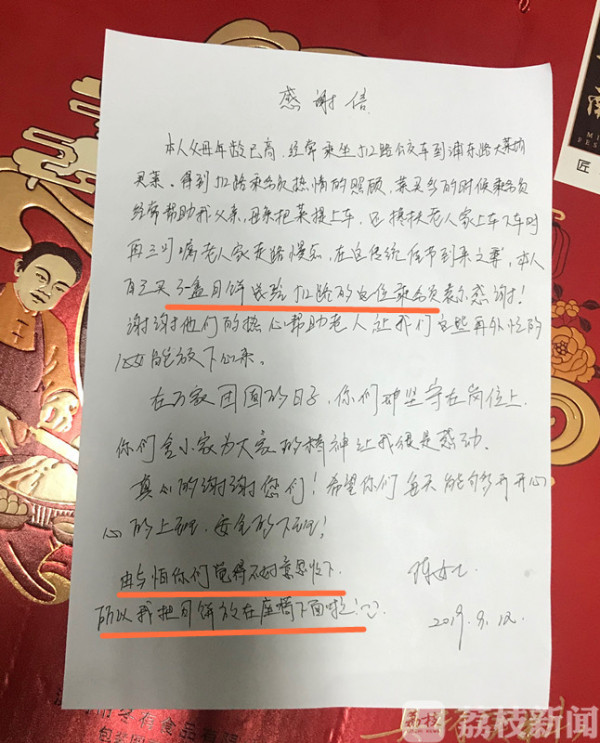 感谢信
本人父母年龄已高，经常乘坐512路公交车到浦东路大菜场
买菜。得到512路乘务员热情的照顾，菜买多的时候乘务员
经常帮助我父亲、母亲把菜提上车，还搀扶老人家上车下车时
再三叮嘱老人家走路慢点，在这传统佳节到来之季，本人
自己买了一盒月饼送给512路的这位乘务员表示感谢！
谢谢他们的热心帮助老人让我们这些再外忙的
儿女能放下心来。
在万家团圆的日子，你们却坚守在岗位上
你们舍小家为大家的精神让我很是感动。
真心的谢谢您们！希望你们每天能够开开心
心的上班，安全的下班！
由与怕你们觉得不好意思收下
所以我把月饼放在座椅下面啦！
陈女士
2019.9.12.
匠
荔枝
荔枝新闻